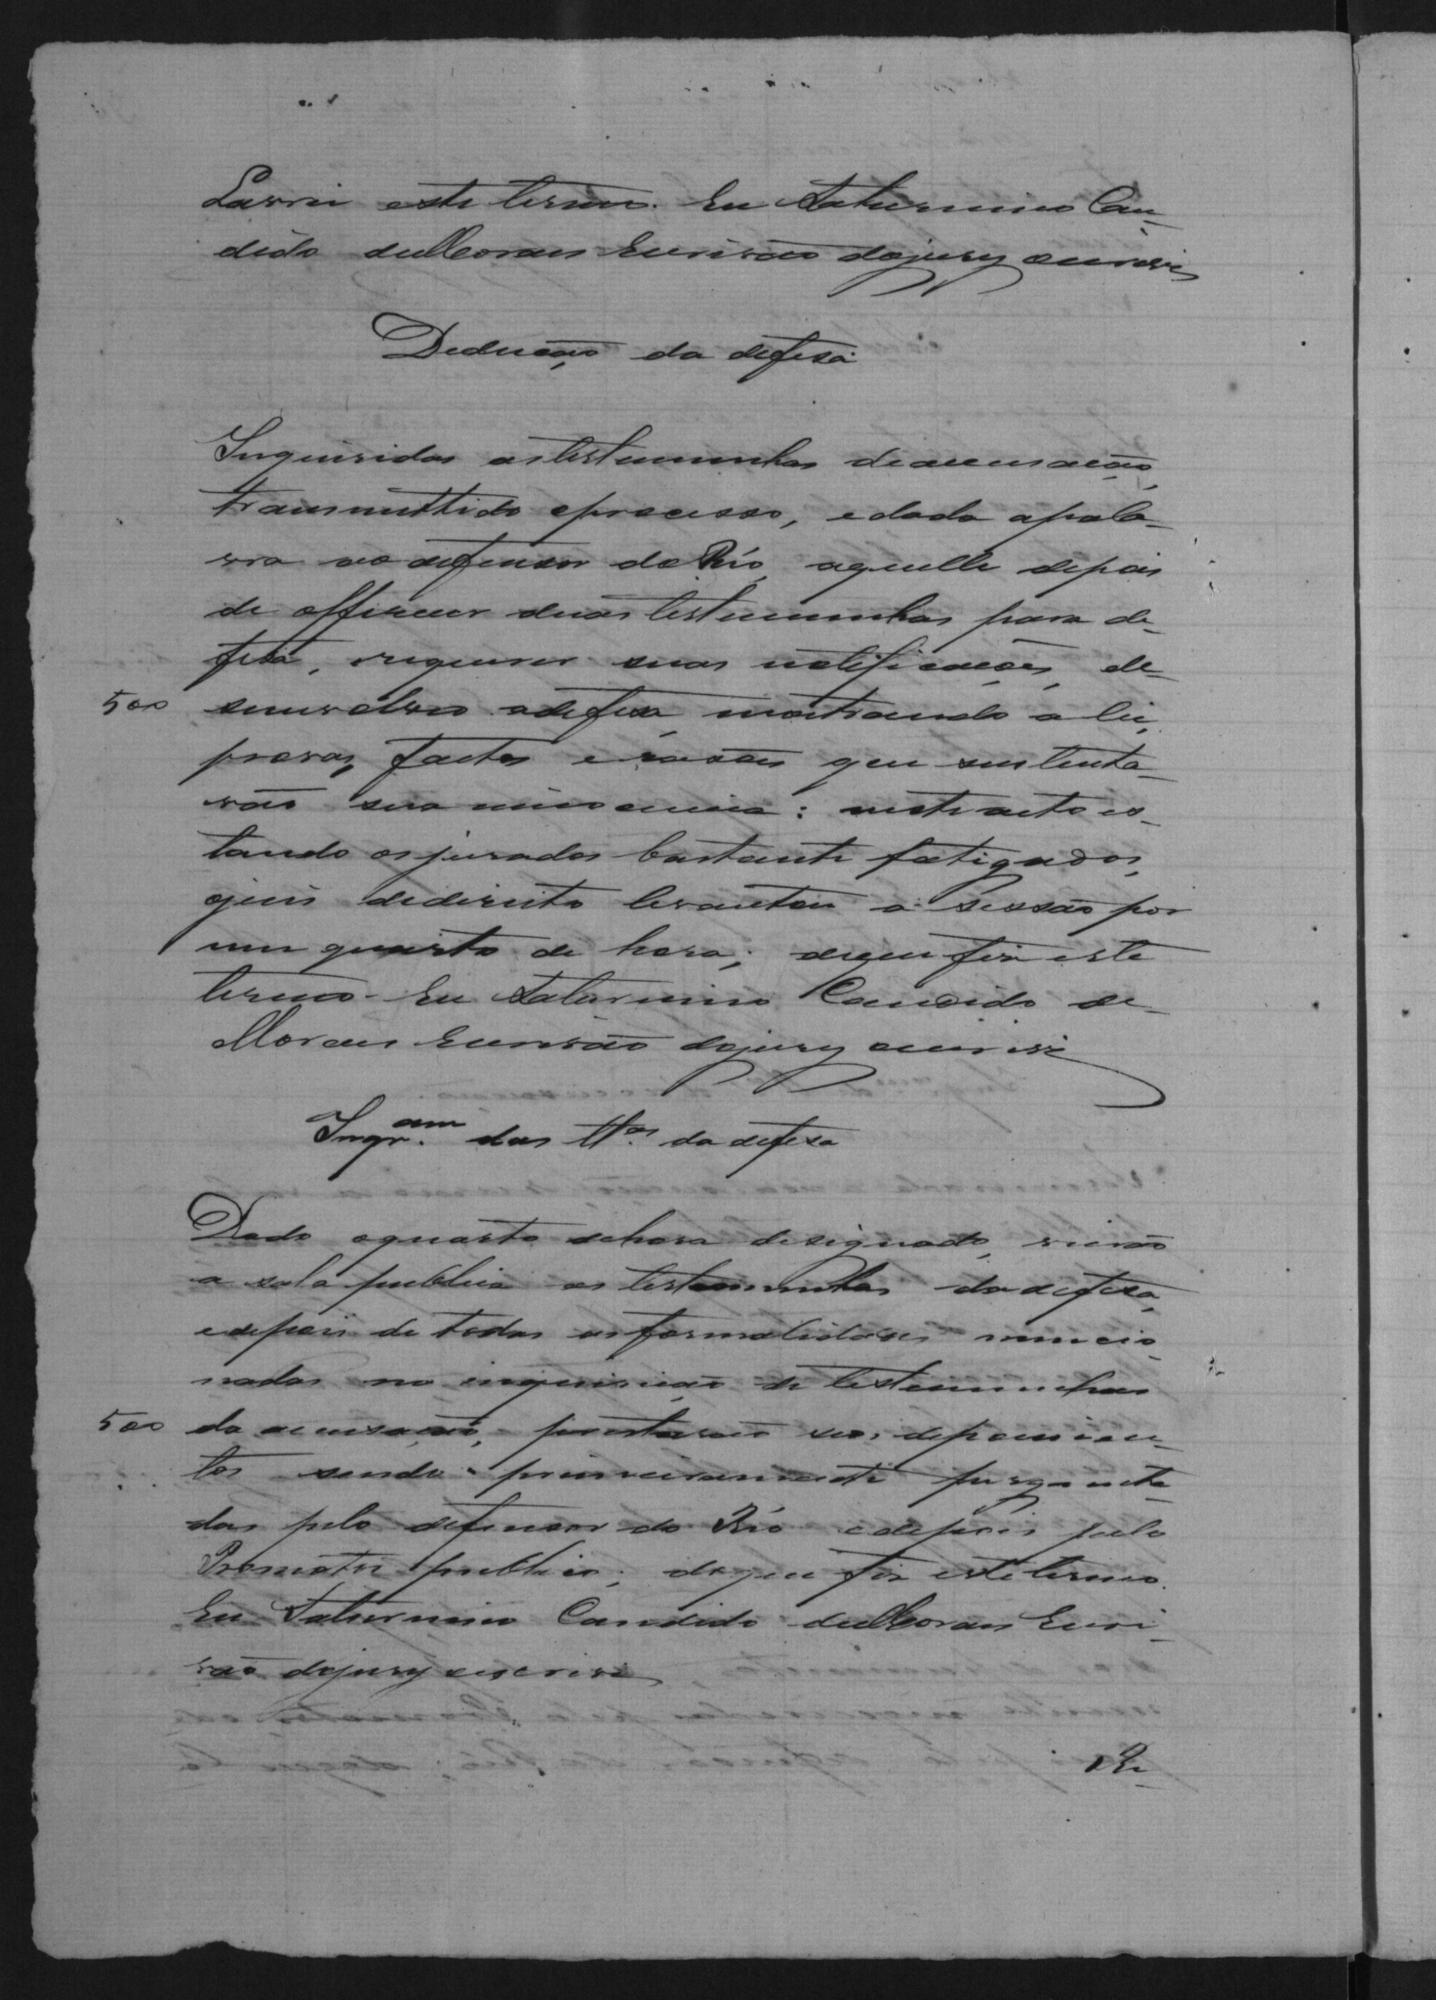 Lavrei este termo. Eu Saturnino Can-
dido de Moraes Escrivão do jury o escrevi
Deducção da defesa
Inqueridas as testemunhas de accusação,
transmittido o processo, e dada a pala-
vra ao defensor do Réo, aquelle depois
de offerecer duas testemunhas para de-
fesa, requerer suas notificações, de-
500 senvolveo a defesa mostrando a lei,
provas, factos e rasões que sustenta-
vão sua innocencia: neste acto es-
tando os jurados bastante fatigados,
o juis de direito levantou a sessão por
um quarto de hora; do que fis este
termo. Eu Saturnino Candido de
Moraes Escrivão do jury o escrevi
Inqr.am das tt.as da defesa
Dado o quarto de hora designado, vierão
a sala publica as testemunhas da defesa,
e depois de todas as formalidades mencio-
nadas na inquirição de testemunhas
500 da accusação, prestarão seos depoimen-
tos sendo primeiramente pergunta-
das pelo defensor do Réo e depois pelo
Promotor publico; do que fis este termo.
Eu Saturnino Candido de Moraes Escri-
vão do jury o escrevi
Re-